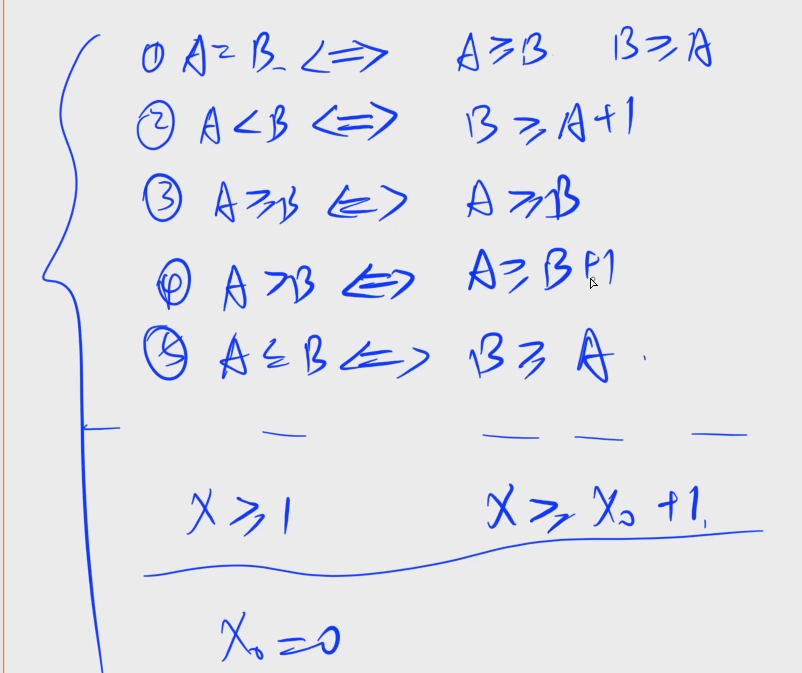 ① A = B <=> A ≥ B B ≥ A
② A < B <=> B ≥ A + 1
③ A ≥ B <=> A ≥ B
④ A > B <=> A ≥ B + 1
⑤ A ≤ B <=> B ≥ A .
X ≥ 1 X ≥ X₀ + 1
X₀ = 0